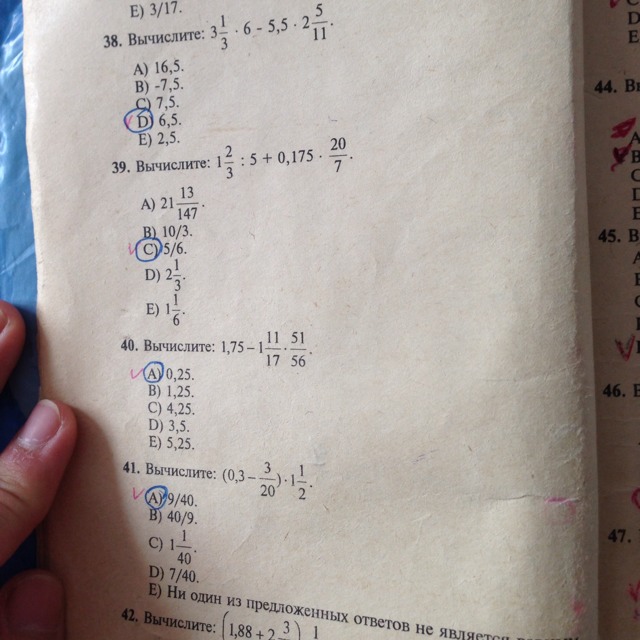 E) 3/17.
38. Вычислите: 3 1/3 · 6 - 5,5 · 2 5/11.
A) 16,5.
B) -7,5.
C) 7,5.
D) 6,5.
E) 2,5.
39. Вычислите: 1 2/3 : 5 + 0,175 · 20/7.
A) 21 13/147.
B) 10/3.
C) 5/6.
D) 2 1/3.
E) 1 1/6.
40. Вычислите: 1,75 – 1 11/17 · 51/56.
A) 0,25.
B) 1,25.
C) 4,25.
D) 3,5.
E) 5,25.
41. Вычислите: (0,3 – 3/20) · 1 1/2.
A) 9/40.
B) 40/9.
C) 1 1/40.
D) 7/40.
E) Ни один из предложенных ответов не является
42. Вычислите: (1,88 + 2 3 1
44. В
B
45. В
46. В
47.